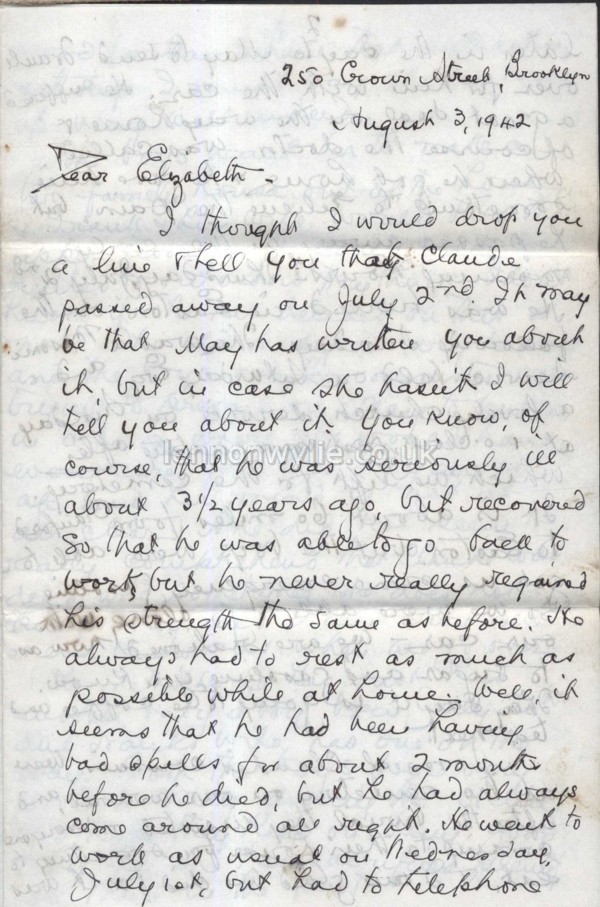 250 Crown Street, Brooklyn
August 3, 1942
Dear Elizabeth -
I thought I would drop you
a line & tell you that Claude
passed away on July 2nd. It may
be that May has written you about
it, but in case she hasn't I will
tell you about it. You know, of
lennonwylie.co.uk
course, that he was seriously ill
about 3 1/2 years ago, but recovered
so that he was able to go back to
work, but he never really regained
his strength the same as before. He
always had to rest as much as
possible while at home. Well, it
seems that he had been having
bad spells for about 2 months
before he died, but he had always
come around all right. He went to
work as usual on Wednesday,
July 1st, but had to telephone